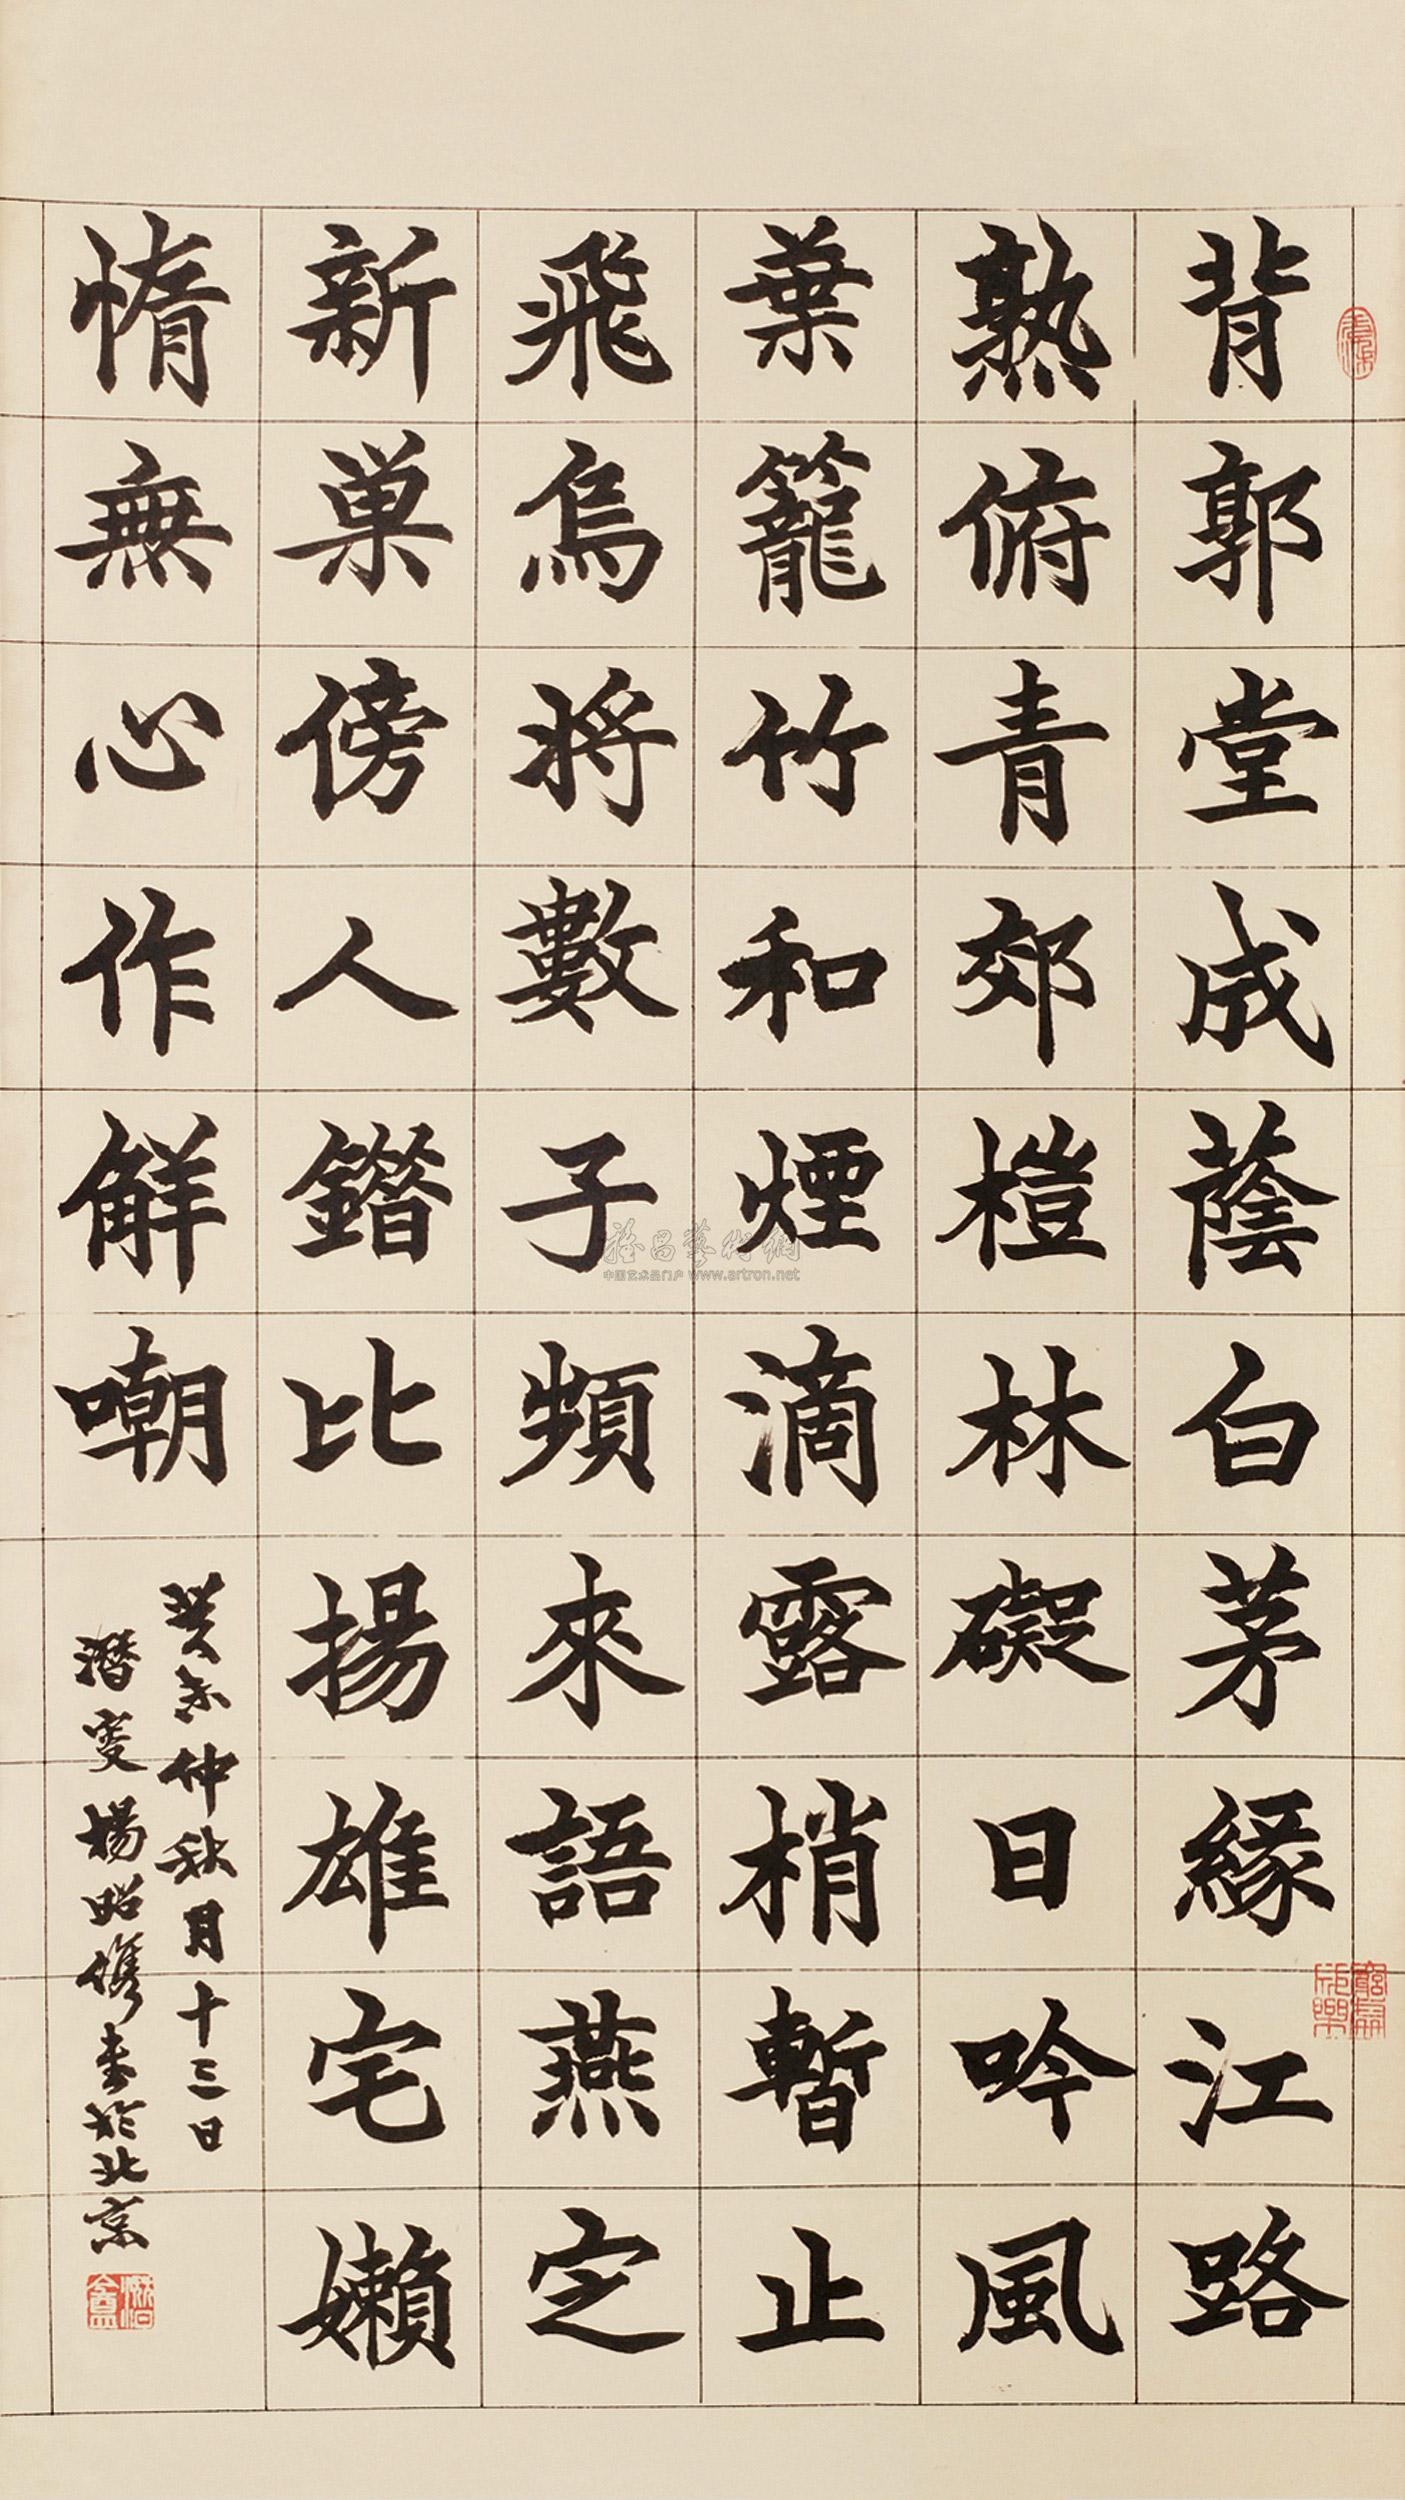 背郭堂成蔭白茅緣江路
熟俯青郊榿林礙日吟風
葉籠竹和煙滴露梢暫止
飛烏將數子頻來語燕定
新巢傍人錯比揚雄宅嬾
惰無心作解嘲
癸未仲秋月十三日
潛叟楊昭儁書於北京
中国艺术品门户 www.artron.net